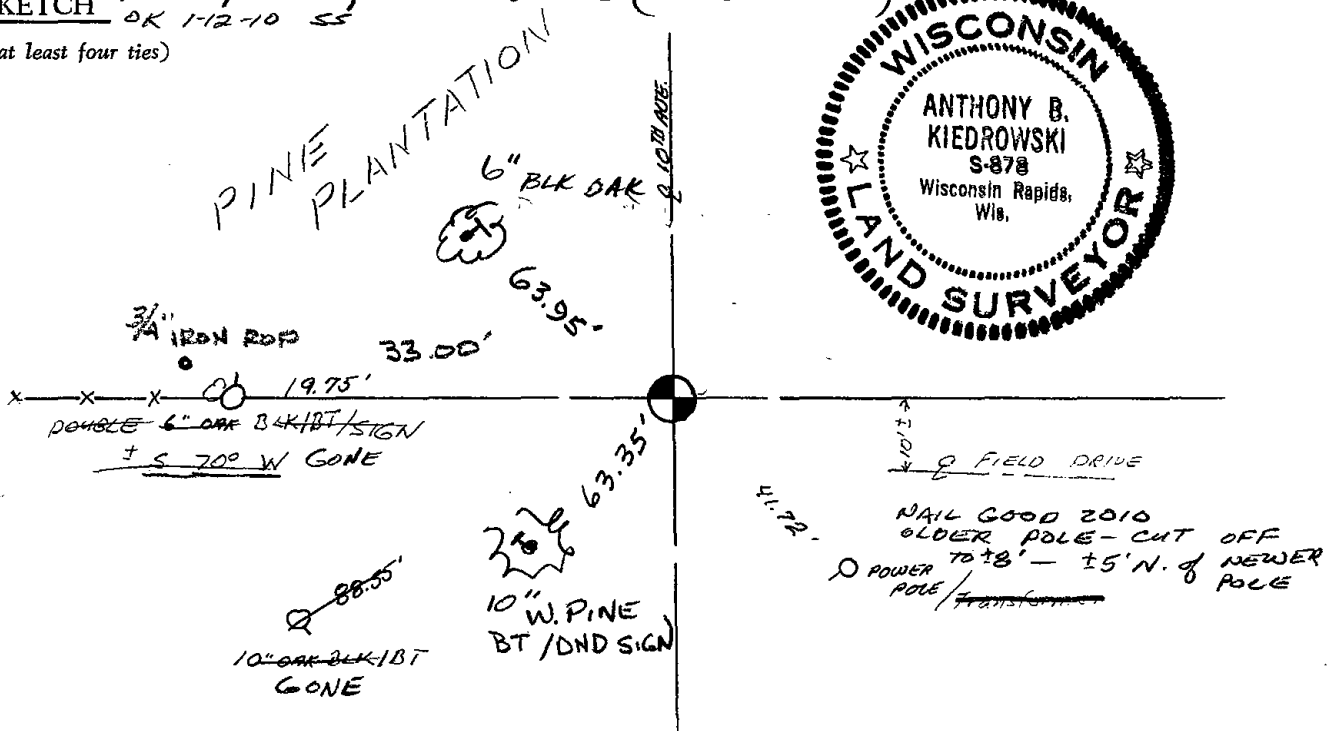 KETCH OK 1-12-10 SS
at least four ties)
PINE
PLANTATION
6" BLK OAK
℄ 10TH AVE.
WISCONSIN
ANTHONY B.
KIEDROWSKI
S-878
Wisconsin Rapids,
Wis.
LAND SURVEYOR
63.95'
3/4" IRON ROD
33.00'
19.75'
DOUBLE 6" OAK BLK/BT/SIGN
± S 70° W GONE
10'±
℄ FIELD DRIVE
63.35'
41.72'
NAIL GOOD 2010
OLDER POLE - CUT OFF
TO ±8' - ±5' N. of NEWER
POLE
POWER
POLE / Transformer
88.55'
10" W. PINE
BT / DND SIGN
10" OAK BLK/BT
GONE